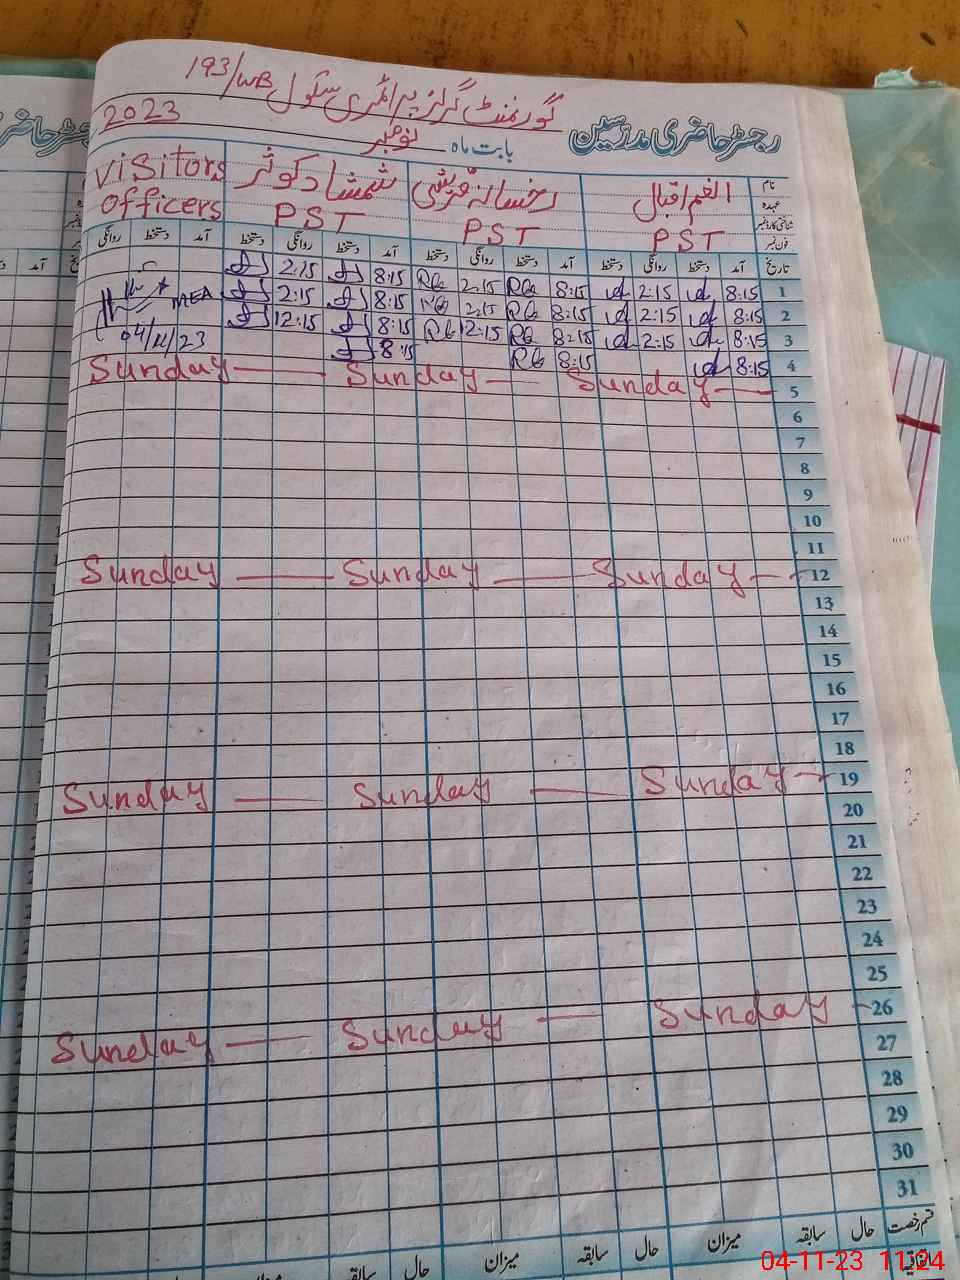 گورنمنٹ گرلز پرائمری سکول 193/WB
رجسٹر حاضری مدرسین بابت ماہ نومبر 2023
نام الغم اقبال رخسانہ قریشی شمشاد کوثر Visitors
عہدہ PST PST PST Officers
شناختی کارڈ نمبر
فون نمبر
تاریخ آمد دستخط روانگی دستخط آمد دستخط روانگی دستخط آمد دستخط روانگی دستخط آمد دستخط روانگی
1 8:15 2:15 8:15 2:15 8:15 2:15
2 8:15 2:15 8:15 2:15 8:15 2:15 MEA
3 8:15 2:15 8:15 12:15 8:15 12:15 04/11/23
4 8:15 8:15 8:15
5 Sunday Sunday Sunday
6
7
8
9
10
11
12 Sunday Sunday Sunday
13
14
15
16
17
18
19 Sunday Sunday Sunday
20
21
22
23
24
25
26 Sunday Sunday Sunday
27
28
29
30
31
قسم رخصت حال سابقہ میزان حال سابقہ میزان حال سابقہ میزان
اتفاقیہ
04-11-23 11:24